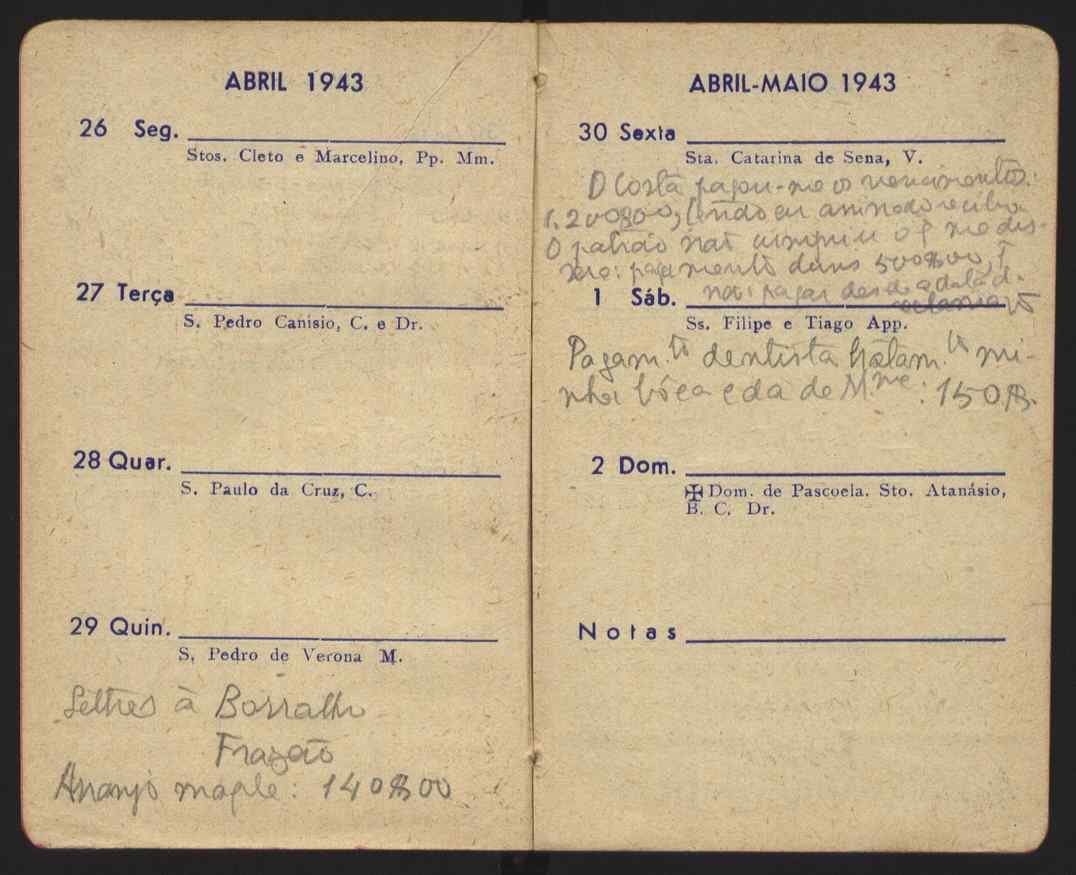 ABRIL 1943
26 Seg.
Stos. Cleto e Marcelino, Pp. Mm.
27 Terça
S. Pedro Canísio, C. e Dr.
28 Quar.
S. Paulo da Cruz, C.
29 Quin.
S. Pedro de Verona M.
Lettres à Borralho
Frazão
Arranjo maple: 140$00
ABRIL-MAIO 1943
30 Sexta
Sta. Catarina de Sena, V.
O Costa pagou-me os vencimentos:
1.200$00, tendo eu assinado recibo
O patrão não cumpriu o q me dis-
sera: pagamento duns 500$00, 
não pagar desde a data d.
1 Sáb.
Ss. Filipe e Tiago App.
Pagam.to dentista tratam.to mi-
nha bôca e da de M.me: 150$.
2 Dom.
✠ Dom. de Pascoela. Sto. Atanásio,
B. C. Dr.
Notas